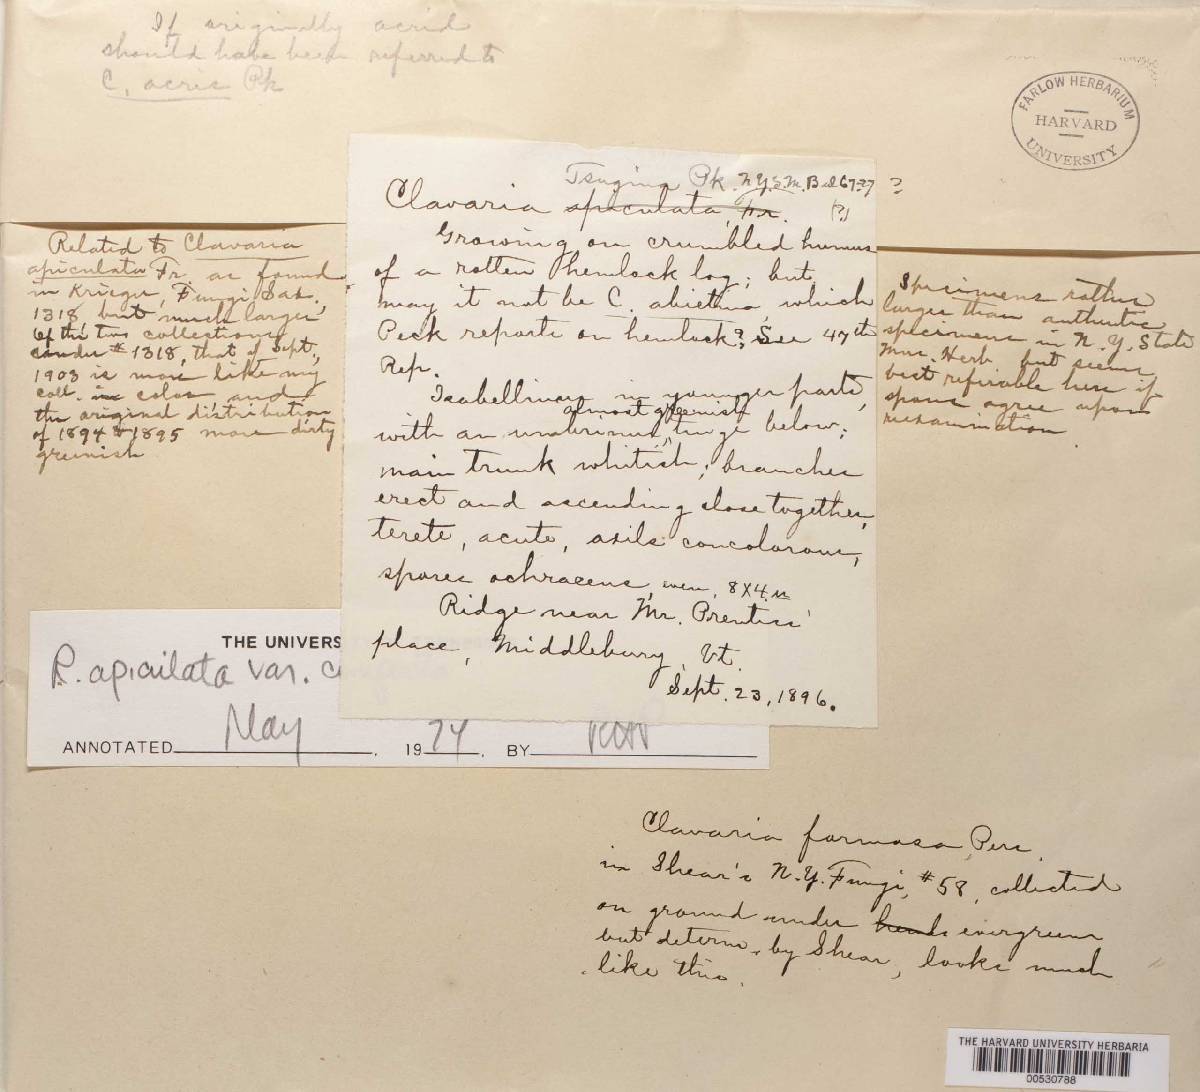 If originally acrid
should have been referred to
C. acris Pk
FARLOW HERBARIUM
HARVARD
UNIVERSITY
Tsugina Pk. N.Y.S.M. Bul 67-27 ?
Clavaria apiculata, Fr. (?)
Growing on crumbled humus
of a rotten hemlock log; but
may it not be C. abietina which
Peck reports on hemlock? See 47th
Rep.
Isabellinus in younger parts,
almost greenish
with an umbrinus, tinge below;
main trunk whitish; branches
erect and ascending close together,
terete, acute, axils concolorous,
spores ochraceus, even, 8X4 u
Ridge near Mr. Prentiss'
place, Middlebury, Vt.
Sept. 23, 1896.
Related to Clavaria
apiculata Fr. as found
in Krieger, Fungi Sax.,
1318, but much larger
Of the two collections
under # 1318, that of Sept.,
1903 is more like my
coll. in color, and
the original distribution
of 1894 & 1895 more dirty
greenish
Specimens rather
larger than authentic
specimens in N.Y. State
Mus. Herb but seems
best referable here if
spores agree upon
reexamination.
THE UNIVERS
R. apiculata var. c
May 74
ANNOTATED . 19 . BY
Clavaria formosa, Pers.
in Shear's N.Y. Fungi, #58, collected
on ground under hemls evergreens
but determ. by Shear, looks much
like this.
THE HARVARD UNIVERSITY HERBARIA
00530788